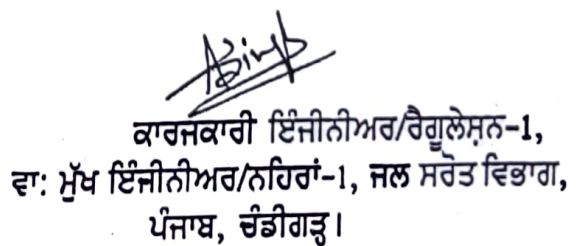 ਕਾਰਜਕਾਰੀ ਇੰਜੀਨੀਅਰ/ਰੈਗੂਲੇਸ਼ਨ-1,
ਵਾ: ਮੁੱਖ ਇੰਜੀਨੀਅਰ/ਨਹਿਰਾਂ-1, ਜਲ ਸਰੋਤ ਵਿਭਾਗ,
ਪੰਜਾਬ, ਚੰਡੀਗੜ੍ਹ।